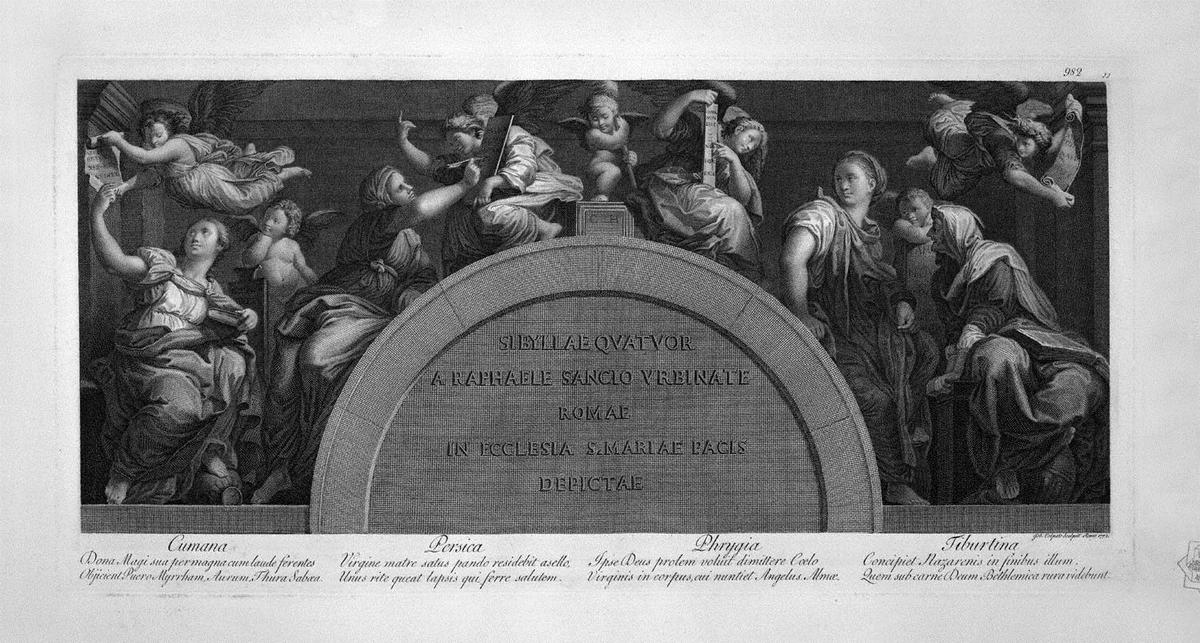 982
SIBYLLAE QVATVOR
A RAPHAELE SANCIO VRBINATE
ROMAE
IN ECCLESIA S. MARIAE PACIS
DEPICTAE
Cumana
Dona Magi sua permagna cum laude ferentes
Objicient Puero Myrrham, Aurum, Thura Sabæa.
Persica
Virgine matre satus pando residebit asello,
Unus rite queat lapsis qui ferre salutem.
Phrygia
Ipse Deus prolem voluit dimittere Cœlo
Virginis in corpus, cui nuntiet Angelus Almæ.
Tiburtina
Concipiet Nazarenis in finibus illum.
Quem sub carne Deum Bethlemica rura videbunt.